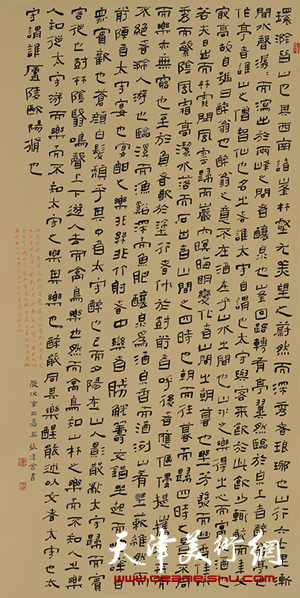 環滁皆山也其西南諸峯林壑尤美望之蔚然而深秀者琅琊也山行六七里漸
聞水聲潺潺而瀉出於兩峰之間者釀泉也峯回路轉有亭翼然臨于泉上者醉翁亭也
作亭者誰山之僧智仙也名之者誰太守自謂也太守與客來飲於此飲少輒醉而年又
最高故自號曰醉翁也醉翁之意不在酒在乎山水之間也山水之樂得之心而寓之酒也
若夫日出而林霏開雲歸而巖穴暝晦明變化者山間之朝暮也野芳發而幽香佳木
秀而繁陰風霜高潔水落而石出者山間之四時也朝而往暮而歸四時之景不同
而樂亦無窮也至於負者歌於途行者休於樹前者呼後者應傴僂提攜往來而
不絕者滁人游也臨溪而漁谿深而魚肥釀泉為酒泉香而酒洌山肴野蔌雜然而
前陳者太守宴也宴酣之樂非絲非竹射者中奕者勝觥籌交錯坐起而諠譁者
眾賓歡也蒼顏白髮頹乎其中者太守醉也已而夕陽在山人影散亂太守歸而賓
客從也樹林陰翳鳴聲上下遊人去而禽鳥樂也然而禽鳥知山林之樂而不知人之樂
人知從太守游而樂而不知太守之樂其樂也醉能同其樂醒能述以文者太守也太
守謂誰廬陵歐陽脩也
張建會書
天津美術網
www.ceameishu.com